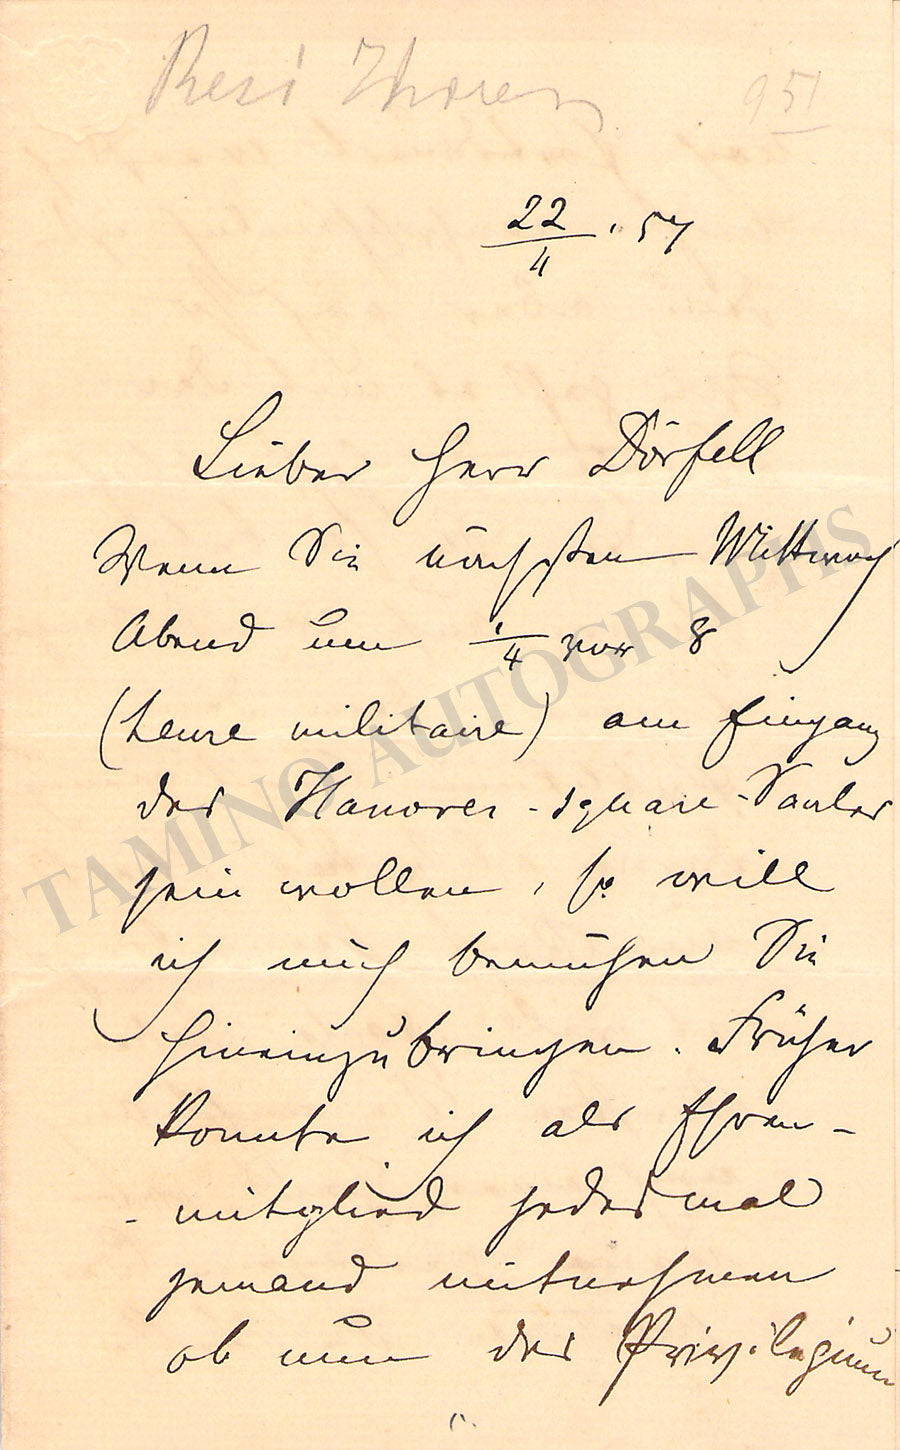 951
22/4 . 57
Lieber Herr Dörfell
Wenn Sie nächsten Mittwoch
Abend um 1/4 vor 8
(heure militaire) am Eingang
des Hanover-square-Saales
sein wollen, so will
ich mich bemühen Sie
hineinzubringen. Früher
konnte ich als Ehren-
-mitglied jedesmal
jemand mitnehmen
ob nun das Privilegium
TAMINO AUTOGRAPHS